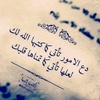 دع الامور تأتي كما كتبها الله لك
لعلها تأتي كما تمناها قلبك